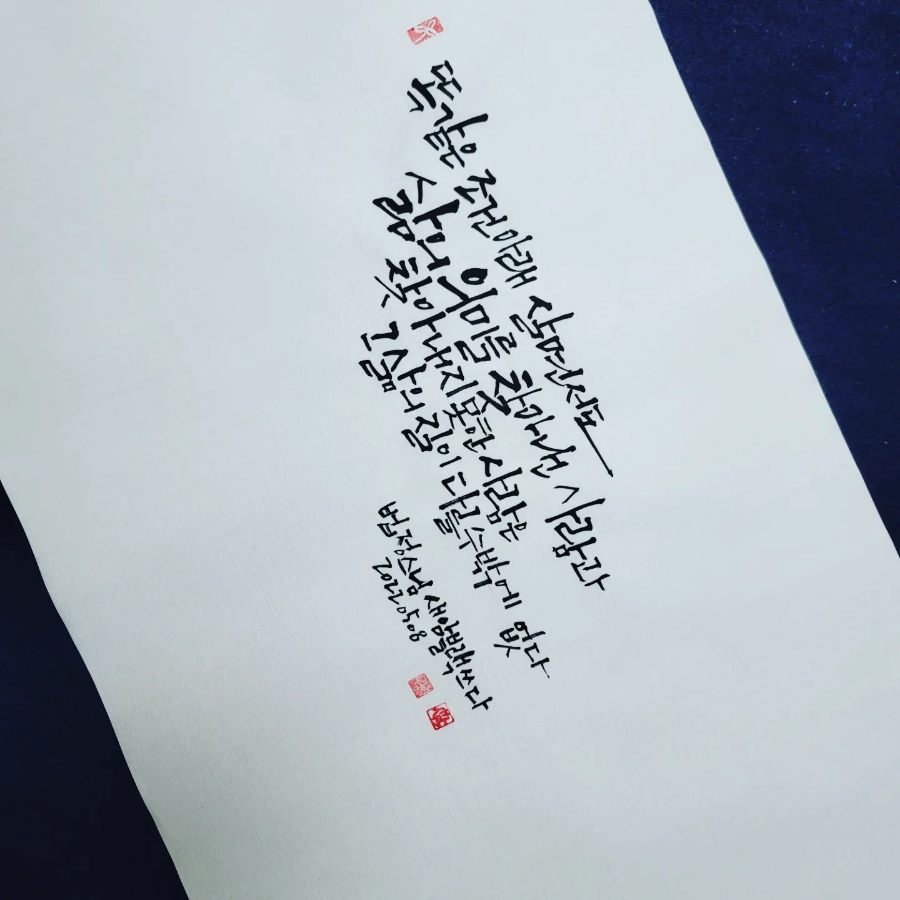 똑같은 조건아래 살면서도
삶의 의미를 찾아낸 사람과
찾아내지 못한 사람은
그 삶의 질이 다를수밖에 없다
법정스님 새암발랙쓰다
20220508